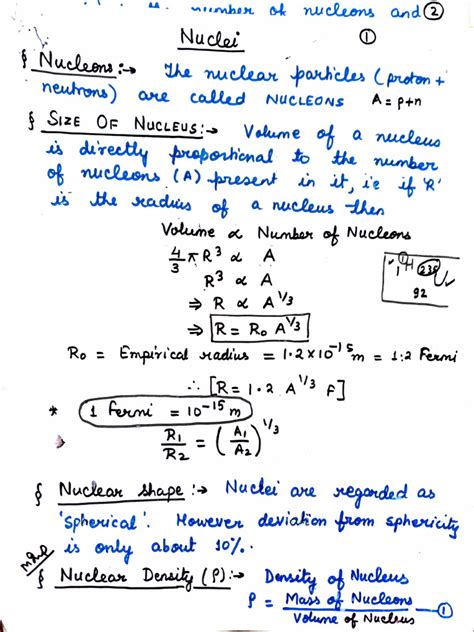 number of nucleons and ②
Nuclei ①
§ Nucleons :→ The nuclear particles (proton +
neutrons) are called NUCLEONS A = p+n
§ SIZE OF NUCLEUS :→ Volume of a nucleus
is directly proportional to the number
of nucleons (A) present in it, i.e if 'R'
is the radius of a nucleus then
Volume ∝ Number of Nucleons
4/3 π R³ ∝ A
R³ ∝ A
⇒ R ∝ A^1/3
⇒ R = R₀ A^1/3
¹₁H ²³⁸U
92
R₀ = Empirical radius = 1.2×10⁻¹⁵ m = 1.2 Fermi
∴ [R = 1.2 A^1/3 F]
* 1 Fermi = 10⁻¹⁵ m
R₁/R₂ = (A₁/A₂)^1/3
§ Nuclear shape :→ Nuclei are regarded as
'Spherical'. However deviation from sphericity
is only about 10%.
§ Nuclear Density (ρ) :→ Density of Nucleus
ρ = Mass of Nucleons / Volume of Nucleus —①